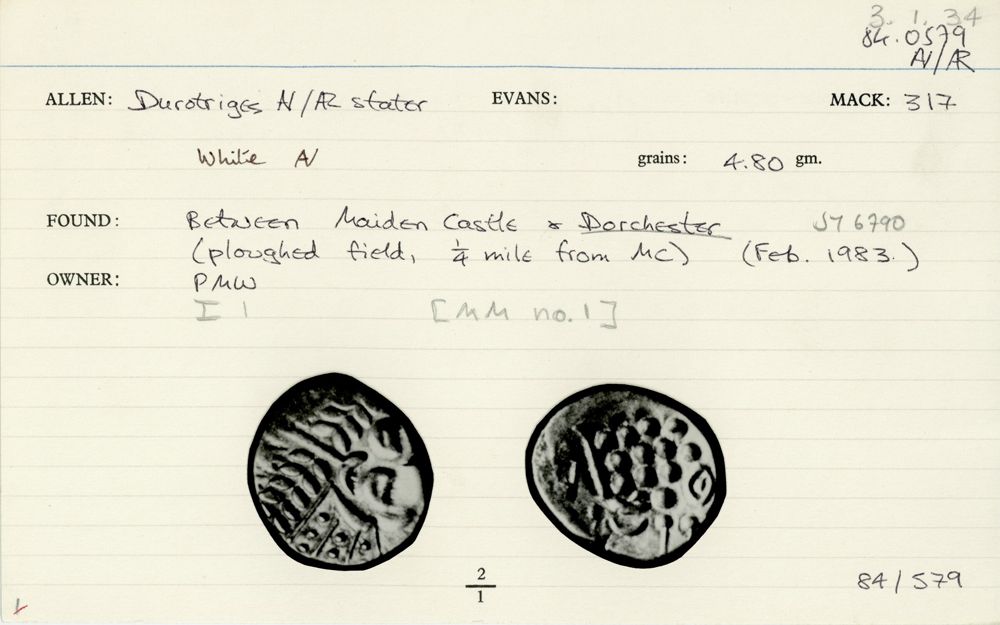 3. 1. 34
84.0579
AV/AR
ALLEN: Durotriges AV/AR stater EVANS: MACK: 317
White AV grains: 4.80 gm.
FOUND: Between Maiden Castle & Dorchester SY 6790
(ploughed field, ¼ mile from MC) (Feb. 1983.)
OWNER: PMW
I 1 [MM no. 1]
2
1
84/579